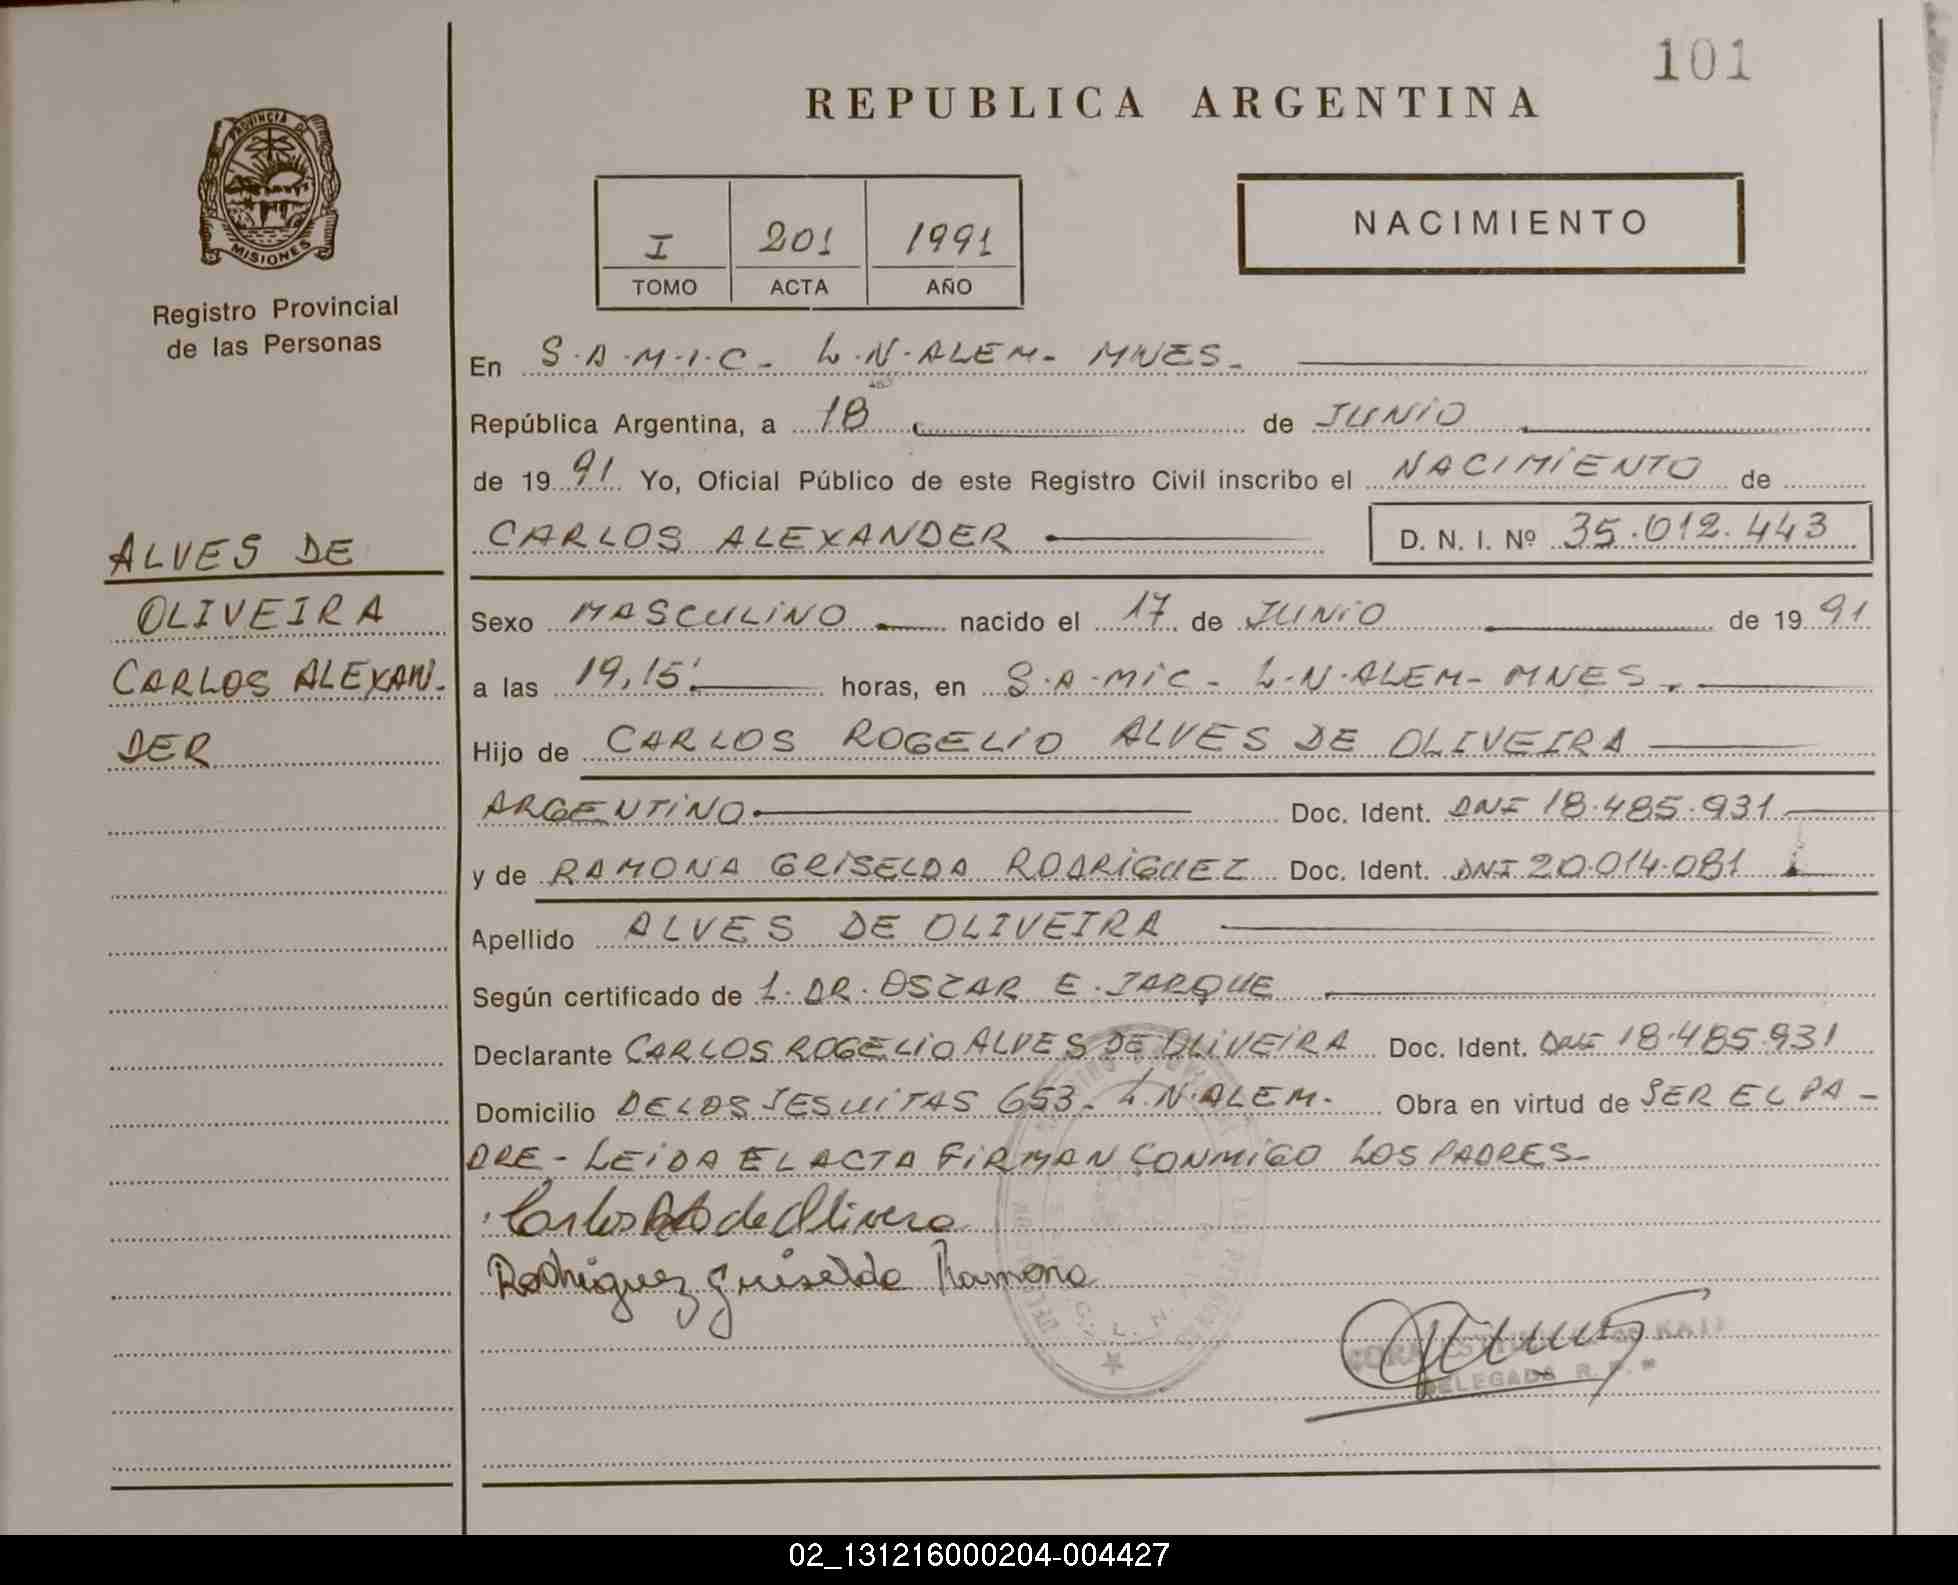 101
REPUBLICA ARGENTINA
PROVINCIA DE
MISIONES
Registro Provincial
de las Personas
I 201 1991
TOMO ACTA AÑO
NACIMIENTO
En S.A.M.I.C. L.N.ALEM- MNES-
República Argentina, a 18 de JUNIO
de 1991 Yo, Oficial Público de este Registro Civil inscribo el NACIMIENTO de
CARLOS ALEXANDER D. N. I. Nº 35.012.443
ALVES DE
OLIVEIRA
CARLOS ALEXAN-
DER
Sexo MASCULINO nacido el 17 de JUNIO de 1991
a las 19,15' horas, en S.A.MIC- L.N.ALEM- MNES.
Hijo de CARLOS ROGELIO ALVES DE OLIVEIRA
ARGENTINO Doc. Ident. DNI 18.485.931
y de RAMONA GRISELDA RODRIGUEZ Doc. Ident. DNI 20.014.081
Apellido ALVES DE OLIVEIRA
Según certificado de 1. DR. OSCAR E. JARQUE
Declarante CARLOS ROGELIO ALVES DE OLIVEIRA Doc. Ident. DNI 18.485.931
Domicilio DE LOS JESUITAS 653- L.N.ALEM. Obra en virtud de SER EL PA-
DRE- LEIDA EL ACTA FIRMAN CONMIGO LOS PADRES-
Carlos de Olivera
Rodriguez Griselda Ramona
DELEGADA R. P.
02_131216000204-004427